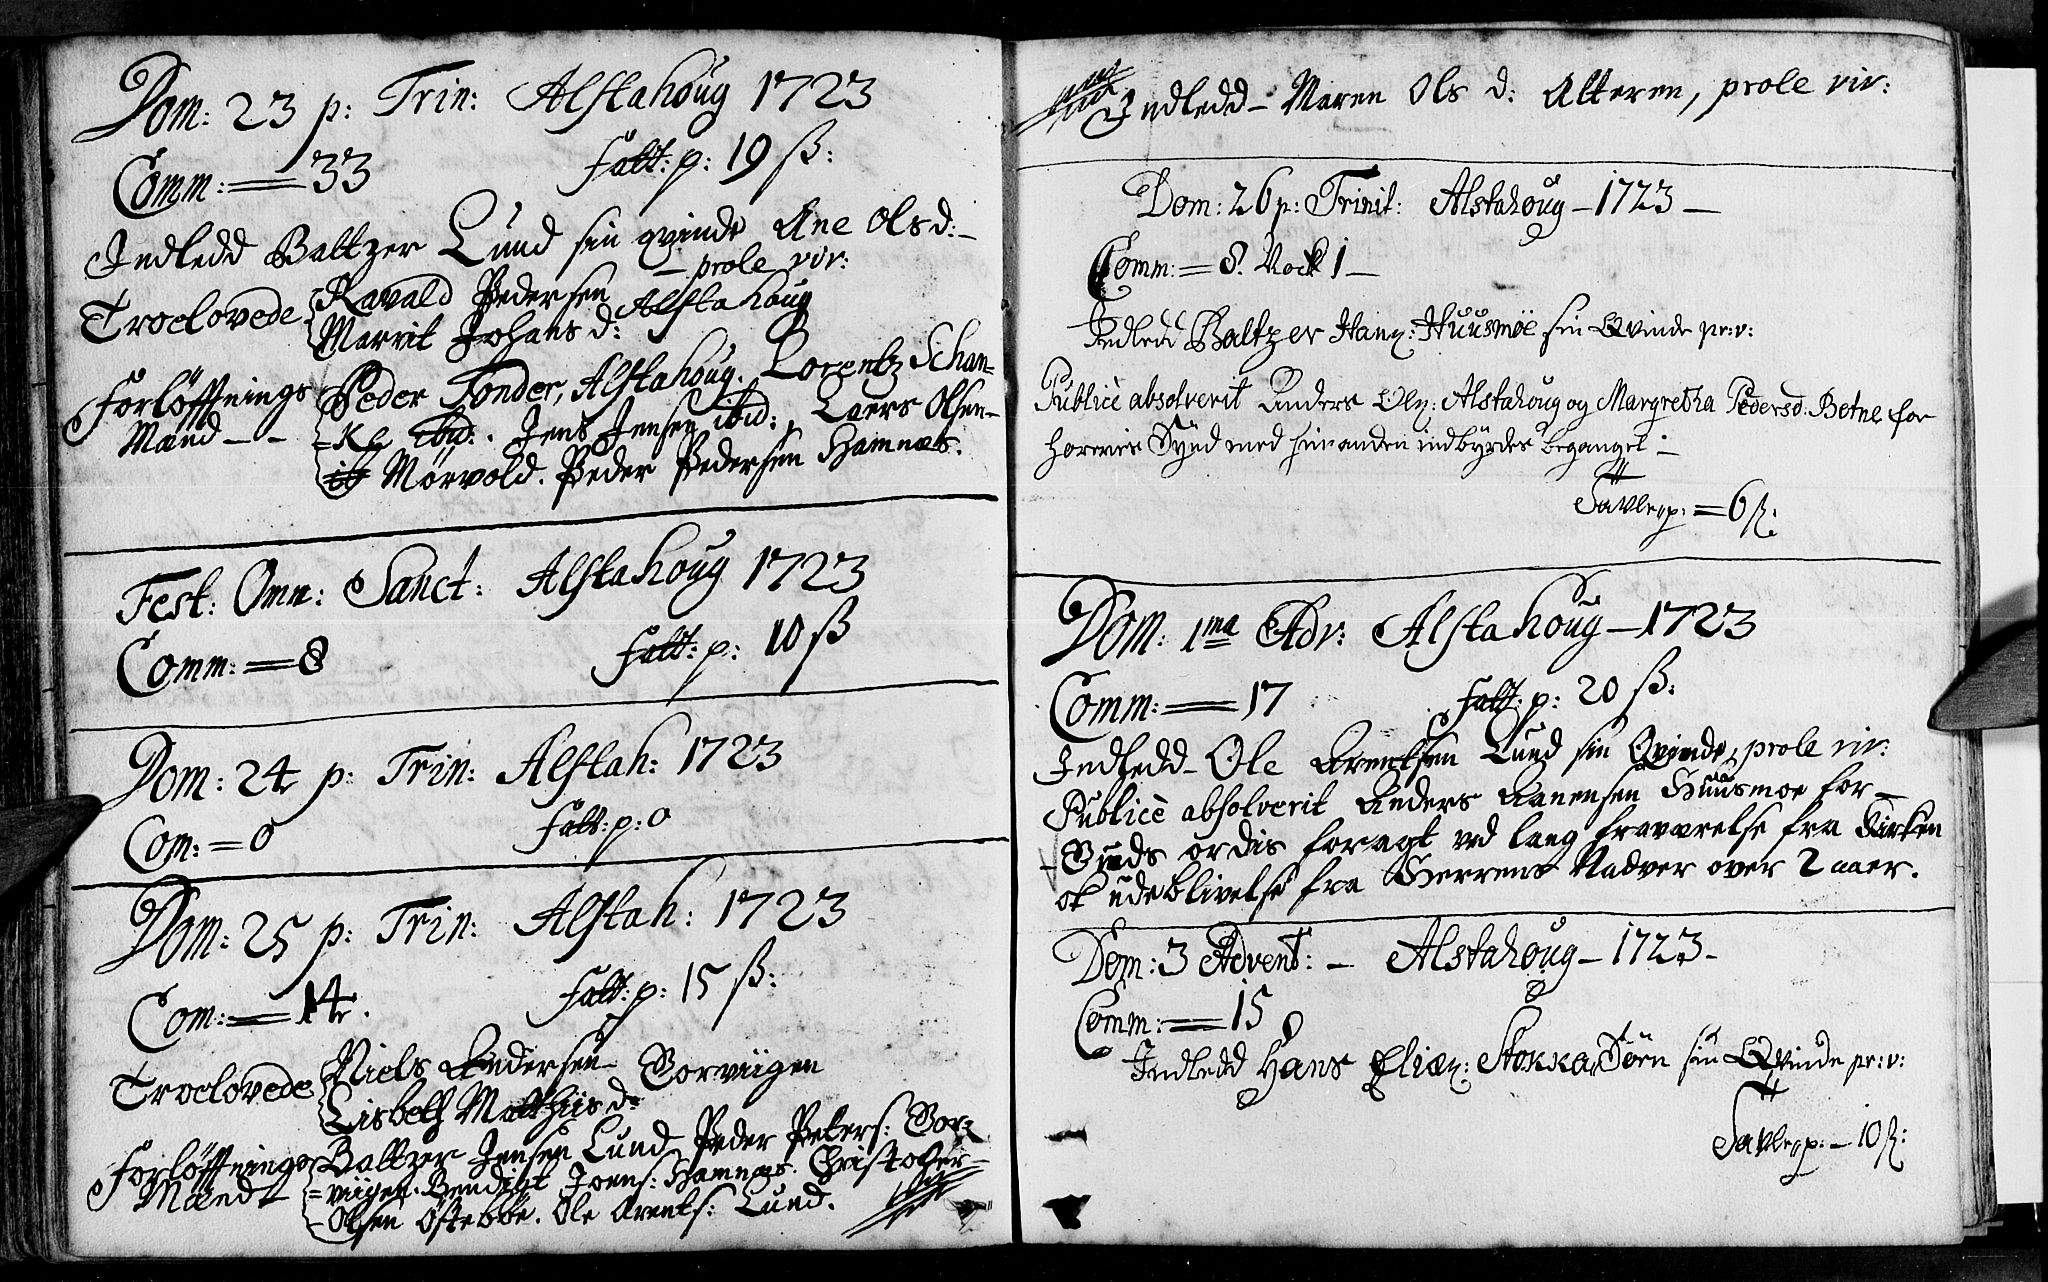 Dom: 23 p: Trin: Alstahoug 1723
Comm: = 33 Fatt: p: 19 ß:
Indledd Baltzer Lund sin qvinde Ane Ols d: -
- prole vir:
Troelovede Ravald Pedersen Alstahoug
Marrit Johans d:
Forløffnings Peder Tonder, Alstahoug. Lorentz Schan-
Mænd - - - ke ibid: . Jens Jensen ibid: , Laers Olsen -
Mørvold. Peder Pedersen Hamnæs.
Fest: Omn: Sanct: Alstahoug 1723
Comm: = 8 Fatt: p: 10 ß
Dom: 24 p: Trin: Alstah: 1723
Com: = 0 Fatt: p: 0
Dom: 25 p: Trin: Alstah: 1723
Com: = 14. Fatt: p: 15 ß:
Troelovede Niels Andersen - Sorviigen
Lisbeth Matthiis d:
Forløffnings Baltzer Jensen Lund Peder Peters: Sor-
Mændt - viigen. Bendigt Joens: Hamnæs. Christopher -
- Olsen Østebøe. Ole Arents: Lund.
Indledd - Maren Ols d: Alteren, prole vir:
Dom: 26 p: Trinit: Alstahoug - 1723 -
Comm: = 8. Vock 1 -
Indledd Baltzer Hanz: Huusmoe sin Qvinde pr: v:
Publicè absolverit Anders Olz: Alstahoug og Margretha Pedersd: Betne for
horeries Synd med hinanden indbyrdes beganget :
Tavle p: = 6 ß:
Dom: 1ma Adv: Alstahoug - 1723
Comm: = 17 Fatt: p: 20 ß:
Indledd - Ole Arentsen Lund sin Qvinde, prole vir:
Publicè absolverit Anders Aanensen Huusmoe for -
- Guds ordis foragt ved lang fraværelse fra Kirken
ok udeblivelse fra Herrens Nadver over 2 aaer.
Dom: 3 Advent: - Alstahoug - 1723 -
Comm: = 15
Indledd Hans Eliæz: Stokka Törn sin Qvinde pr: v:
Tavle p: - 10 ß: